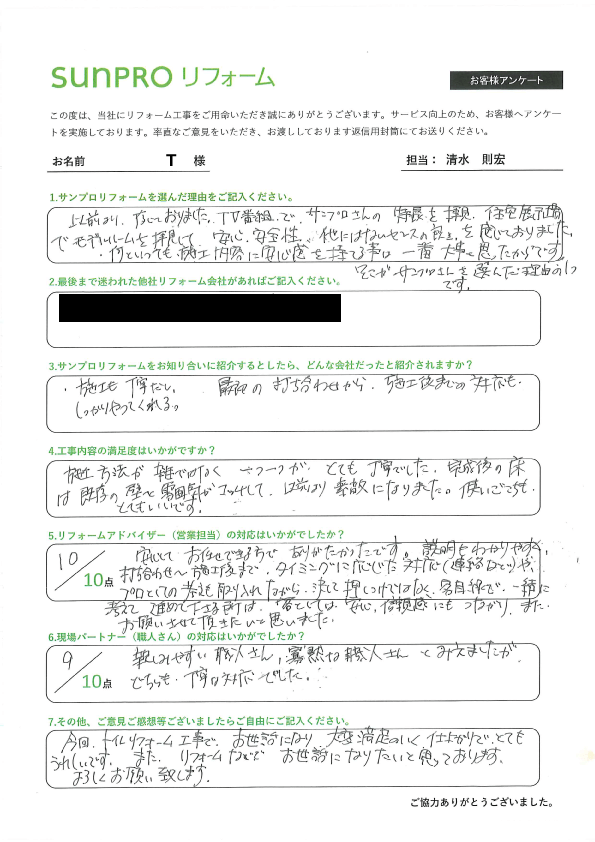 SUNPRO リフォーム
お客様アンケート
この度は、当社にリフォーム工事をご用命いただき誠にありがとうございます。サービス向上のため、お客様へアンケー
トを実施しております。率直なご意見をいただき、お渡ししております返信用封筒にてお送りください。
お名前 T 様
担当： 清水 則宏
1.サンプロリフォームを選んだ理由をご記入ください。
以前より、存じておりました。TV番組で、サンプロさんの特長を拝見、住宅展示場
でモデルルームを拝見して 安心、安全性、他にはないセンスの良さを感じておりました。
・何といっても施工内容に安心感を持てる事は一番大事と思たからです。
そこがサンプロさんを選んだ理由の1つ
です。
2.最後まで迷われた他社リフォーム会社があればご記入ください。
3.サンプロリフォームをお知り合いに紹介するとしたら、どんな会社だったと紹介されますか？
・施工も丁寧だし。 最初の打ち合わせから、施工後までの対応も、
しっかりやってくれる。
4.工事内容の満足度はいかがですか？
施工方法が雑ではなく 一つ一つが、とても丁寧でした。完成後の床
は既存の壁と雰囲気がマッチして、以前より素敵になりました。使いごこちも、
とてもいいです。
5.リフォームアドバイザー（営業担当）の対応はいかがでしたか？
10／10点
安心して お任せできる方で ありがたかったです。説明もわかりやすく、
打ち合わせ〜施工後まで、タイミングに応じた対応(連絡など)や、
プロとしての考えも取り入れながら、決して押しつけではなく、客目線で、一緒に
考えて進めて下さる所は、客としては、安心、信頼感にもつながり、また、
お願いさせて頂きたいと思いました。
6.現場パートナー（職人さん）の対応はいかがでしたか？
9／10点
親しみやすい職人さん、寡黙な職人さん とみえましたが、
どちらも丁寧な対応でした。
7.その他、ご意見ご感想等ございましたらご自由にご記入ください。
今回、トイレリフォーム工事で、お世話になり 大変満足のいく仕上がりで、とても
うれしいです。また、リフォームなどで お世話になりたいと思っております。
よろしくお願い致します。
ご協力ありがとうございました。